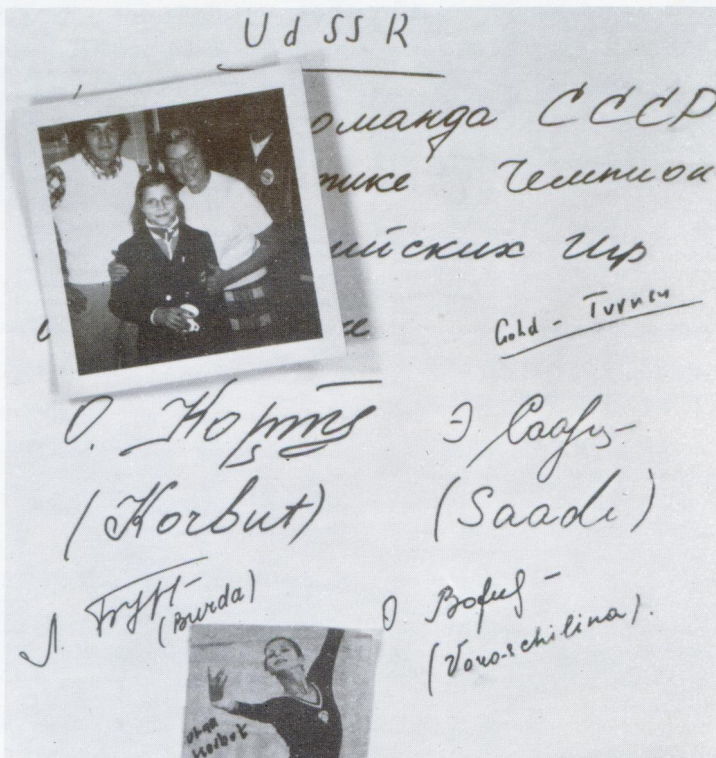 UdSSR
оманда СССР
тике Чемпион
ийских Игр
Gold - Turnen
О. Корбут
Э Саади
(Korbut)
(Saadi)
Л.
(Burda)
О.
(Voroschilina).
Olga
Korbut